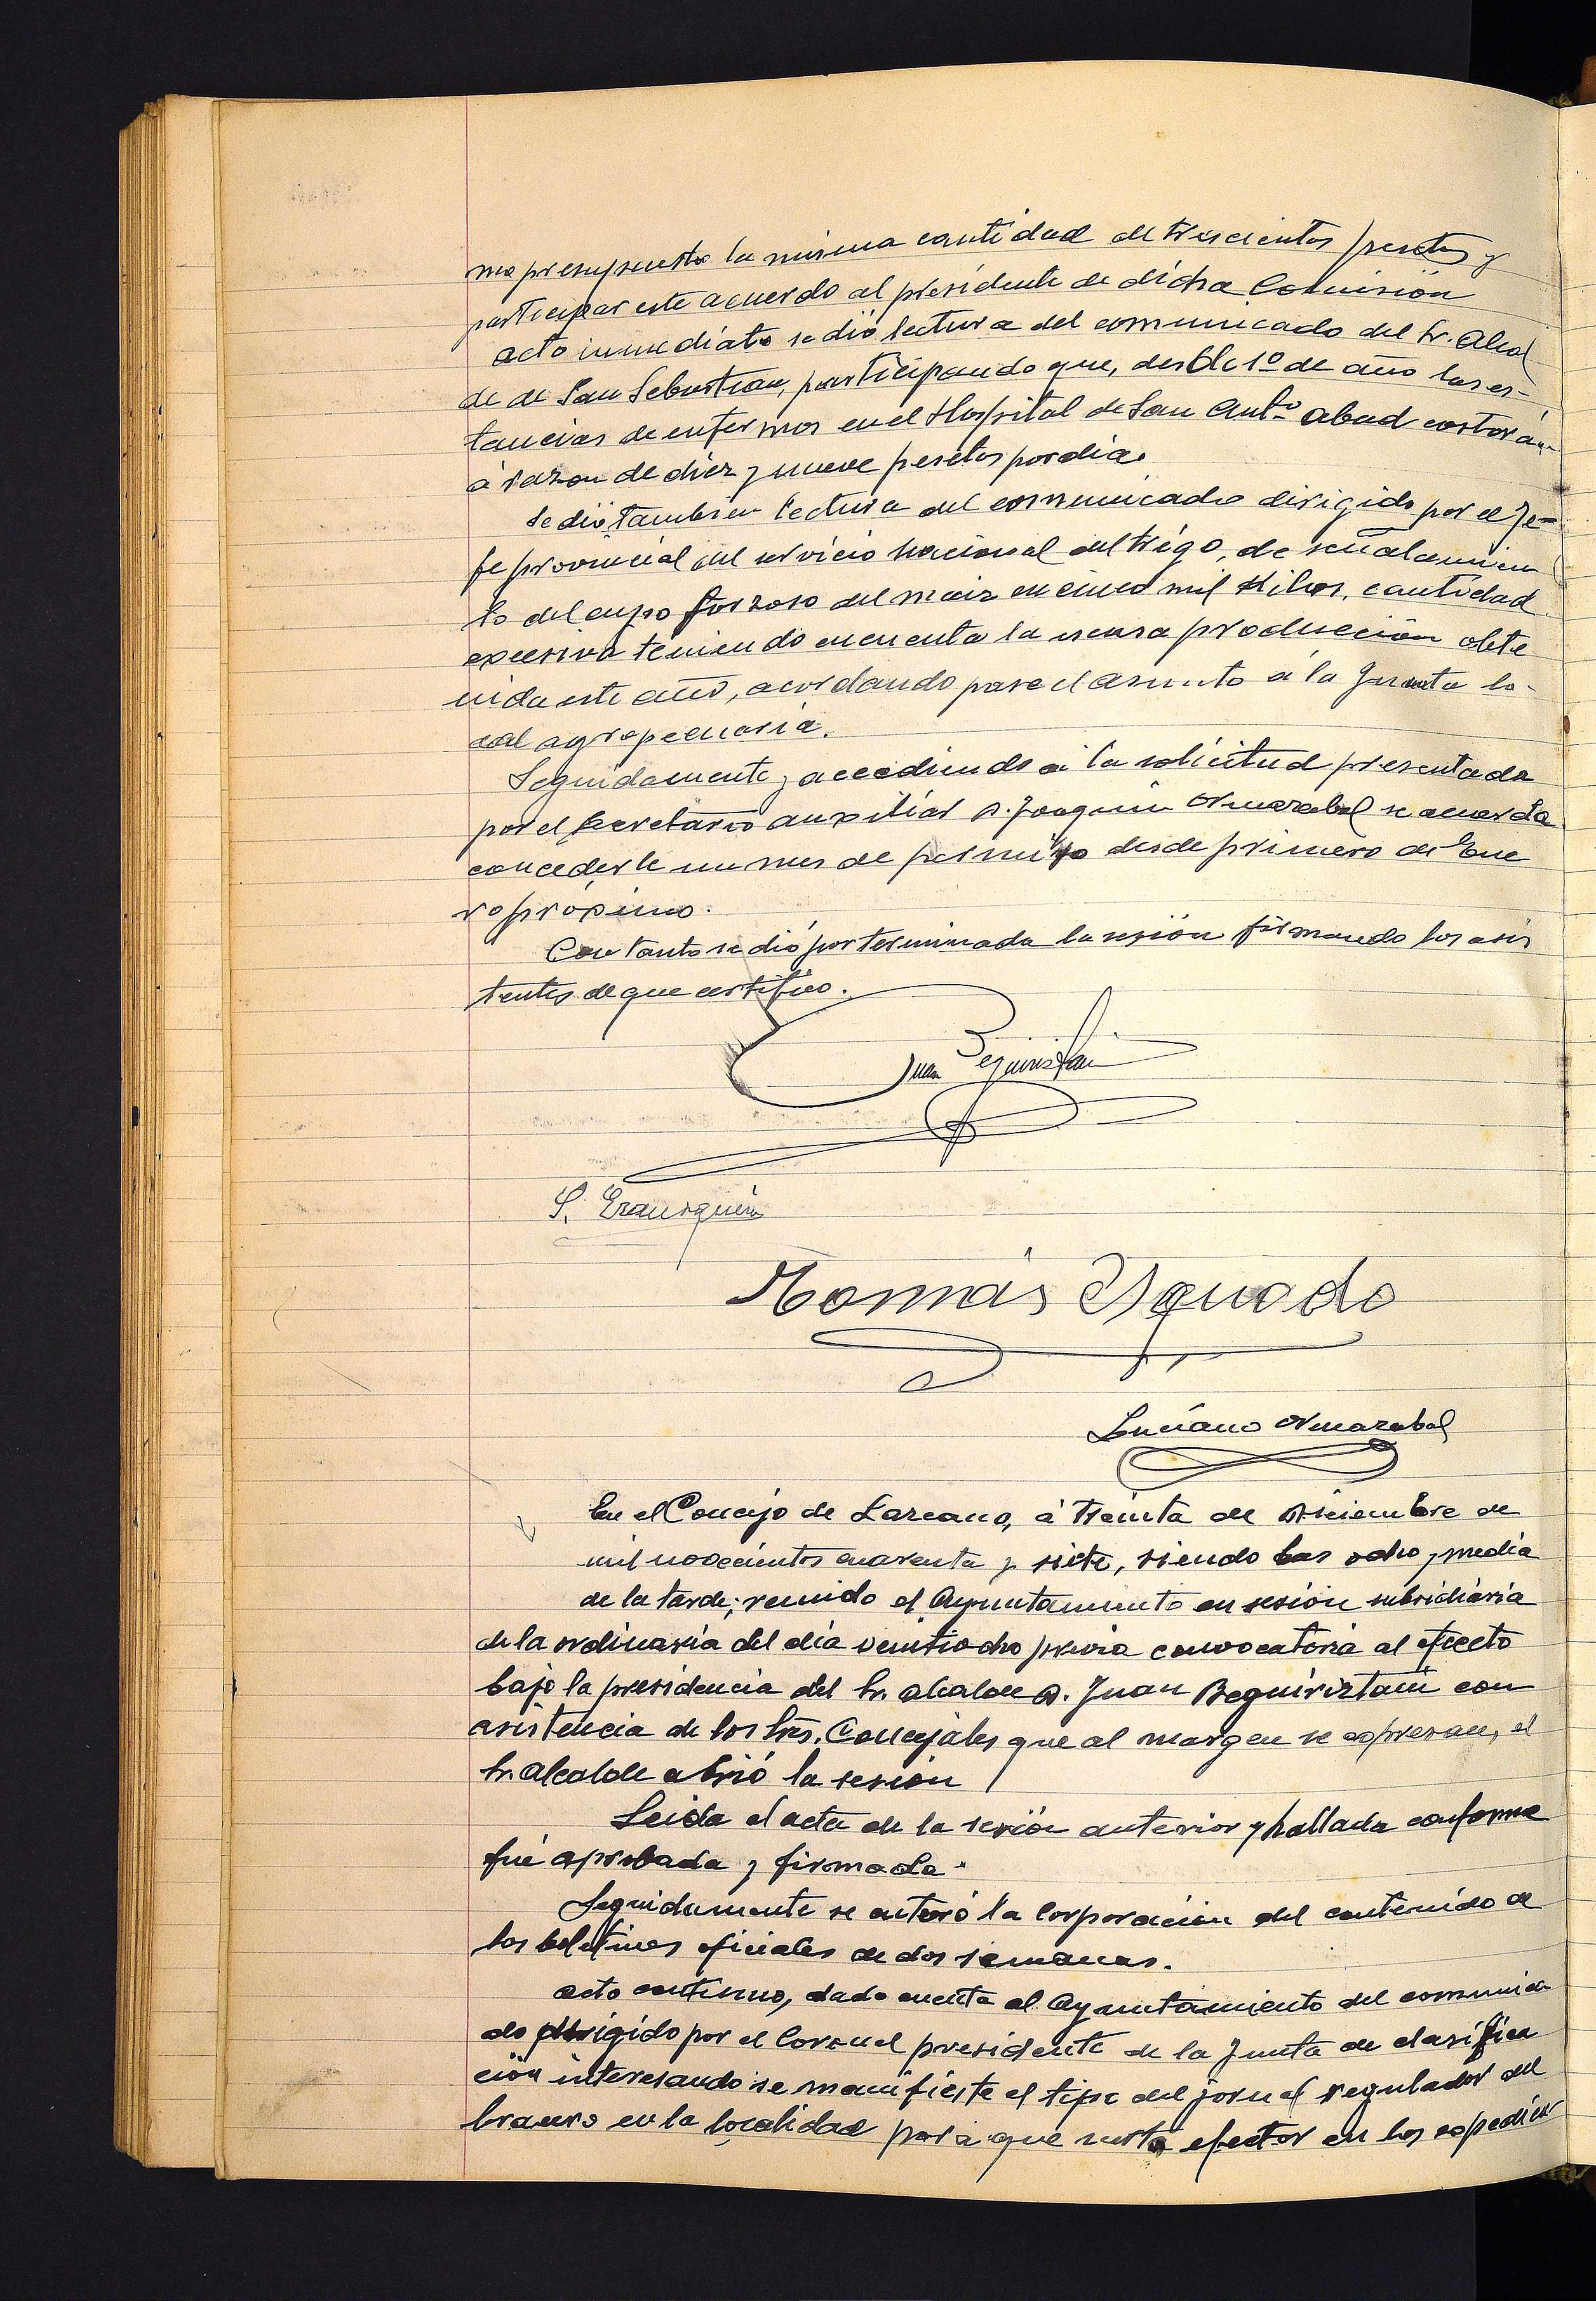 mo presupuesto la misma cantidad de trescientos pesetas y
participar este acuerdo al presidente de dicha Comisión
acto inmediato se dió lectura del comunicado del Sr. Alcal
de de San Sebastian, participando que, desde 1º de año las es-
tancias de enfermos en el Hospital de San Antº abad costarán
á razon de diez y nueve pesetas por dia.
Se dió tambien lectura del comunicado dirigido por el Je-
fe provincial del servicio nacional del trigo, de señalamien
to del cupo forzoso del maiz en cinco mil Kilos, cantidad
excesiva teniendo en cuenta la escasa producción obte
nida este año, acordando pase el asunto á la Junta lo-
cal agropecuaria.
Seguidamente, accediendo á la solicitud presentada
por el Secretario auxiliar D. Joaquin Ormazabal se acuerda
concederle un mes de permiso desde primero de Ene
ro próximo.
Con tanto se dió por terminada la sesión firmando los asis
tentes de que certifico.
Juan Beguiristain
S. Erausquin
Tomás Izquado
Luciano Ormazabal
En el Concejo de Lazcano, á treinta de Diciembre de
mil novecientos cuarenta y siete, siendo las ocho y media
de la tarde; reunido el Ayuntamiento en sesión subsidiaria
de la ordinaria del dia veintiocho previa convocatoria al efecto
bajo la presidencia del Sr. alcalde D. Juan Beguiriztain con
asistencia de los Srs. Concejales que al margen se expresan, el
Sr. alcalde abrió la sesión
Leida el acta de la sesión anterior y hallada conforme
fué aprobada y firmada.
Seguidamente se enteró la Corporación del contenido de
los boletines oficiales de dos semanas.
acto continuo, dado cuenta al Ayuntamiento del comunica
do dirigido por el Coronel presidente de la Junta de clasifica
ción interesando se manifieste el tipo del jornal regulador del
bracero en la localidad para que surta efectos en los expedien